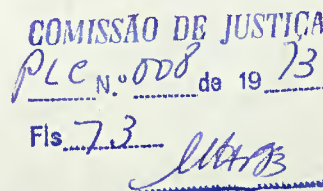 COMISSÃO DE JUSTIÇA
PLC N.º 008 de 19 73
Fls 73